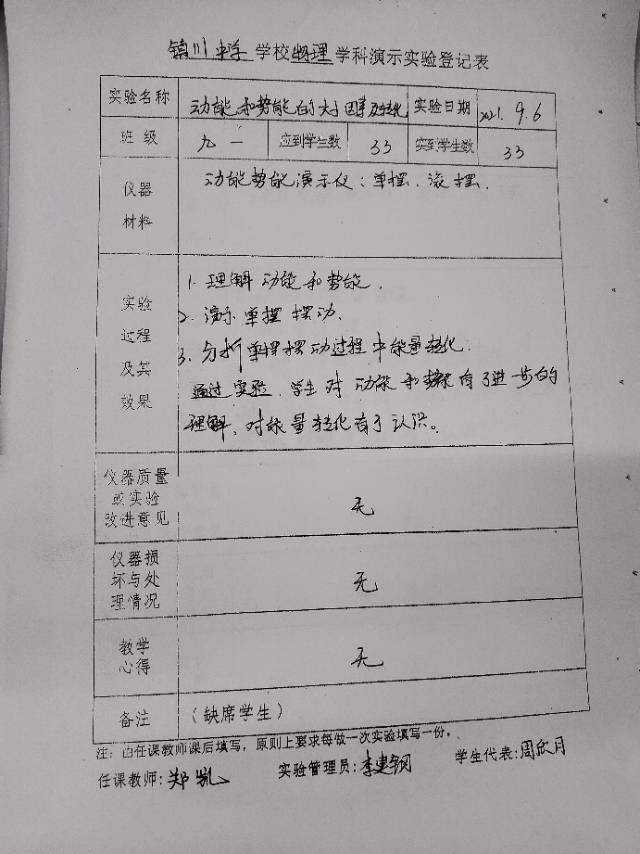 镇川中学 学校物理学科演示实验登记表
实验名称 动能和势能的大小因素及转化 实验日期 2021.9.6
班级 九一 应到学生数 33 实到学生数 33
仪器 动能势能演示仪：单摆、滚摆.
材料
1. 理解动能和势能.
实验 2. 演示单摆摆动.
过程 3. 分析单摆摆动过程中能量转化.
及其 通过实验，学生对动能和势能有了进一步的
效果 理解，对能量转化有了认识。
仪器质量
或实验 无
改进意见
仪器损
坏与处 无
理情况
教学 无
心得
备注 （缺席学生）
注：由任课教师课后填写，原则上要求每做一次实验填写一份。
任课教师：郑凯 实验管理员：李建钢 学生代表：周欣月